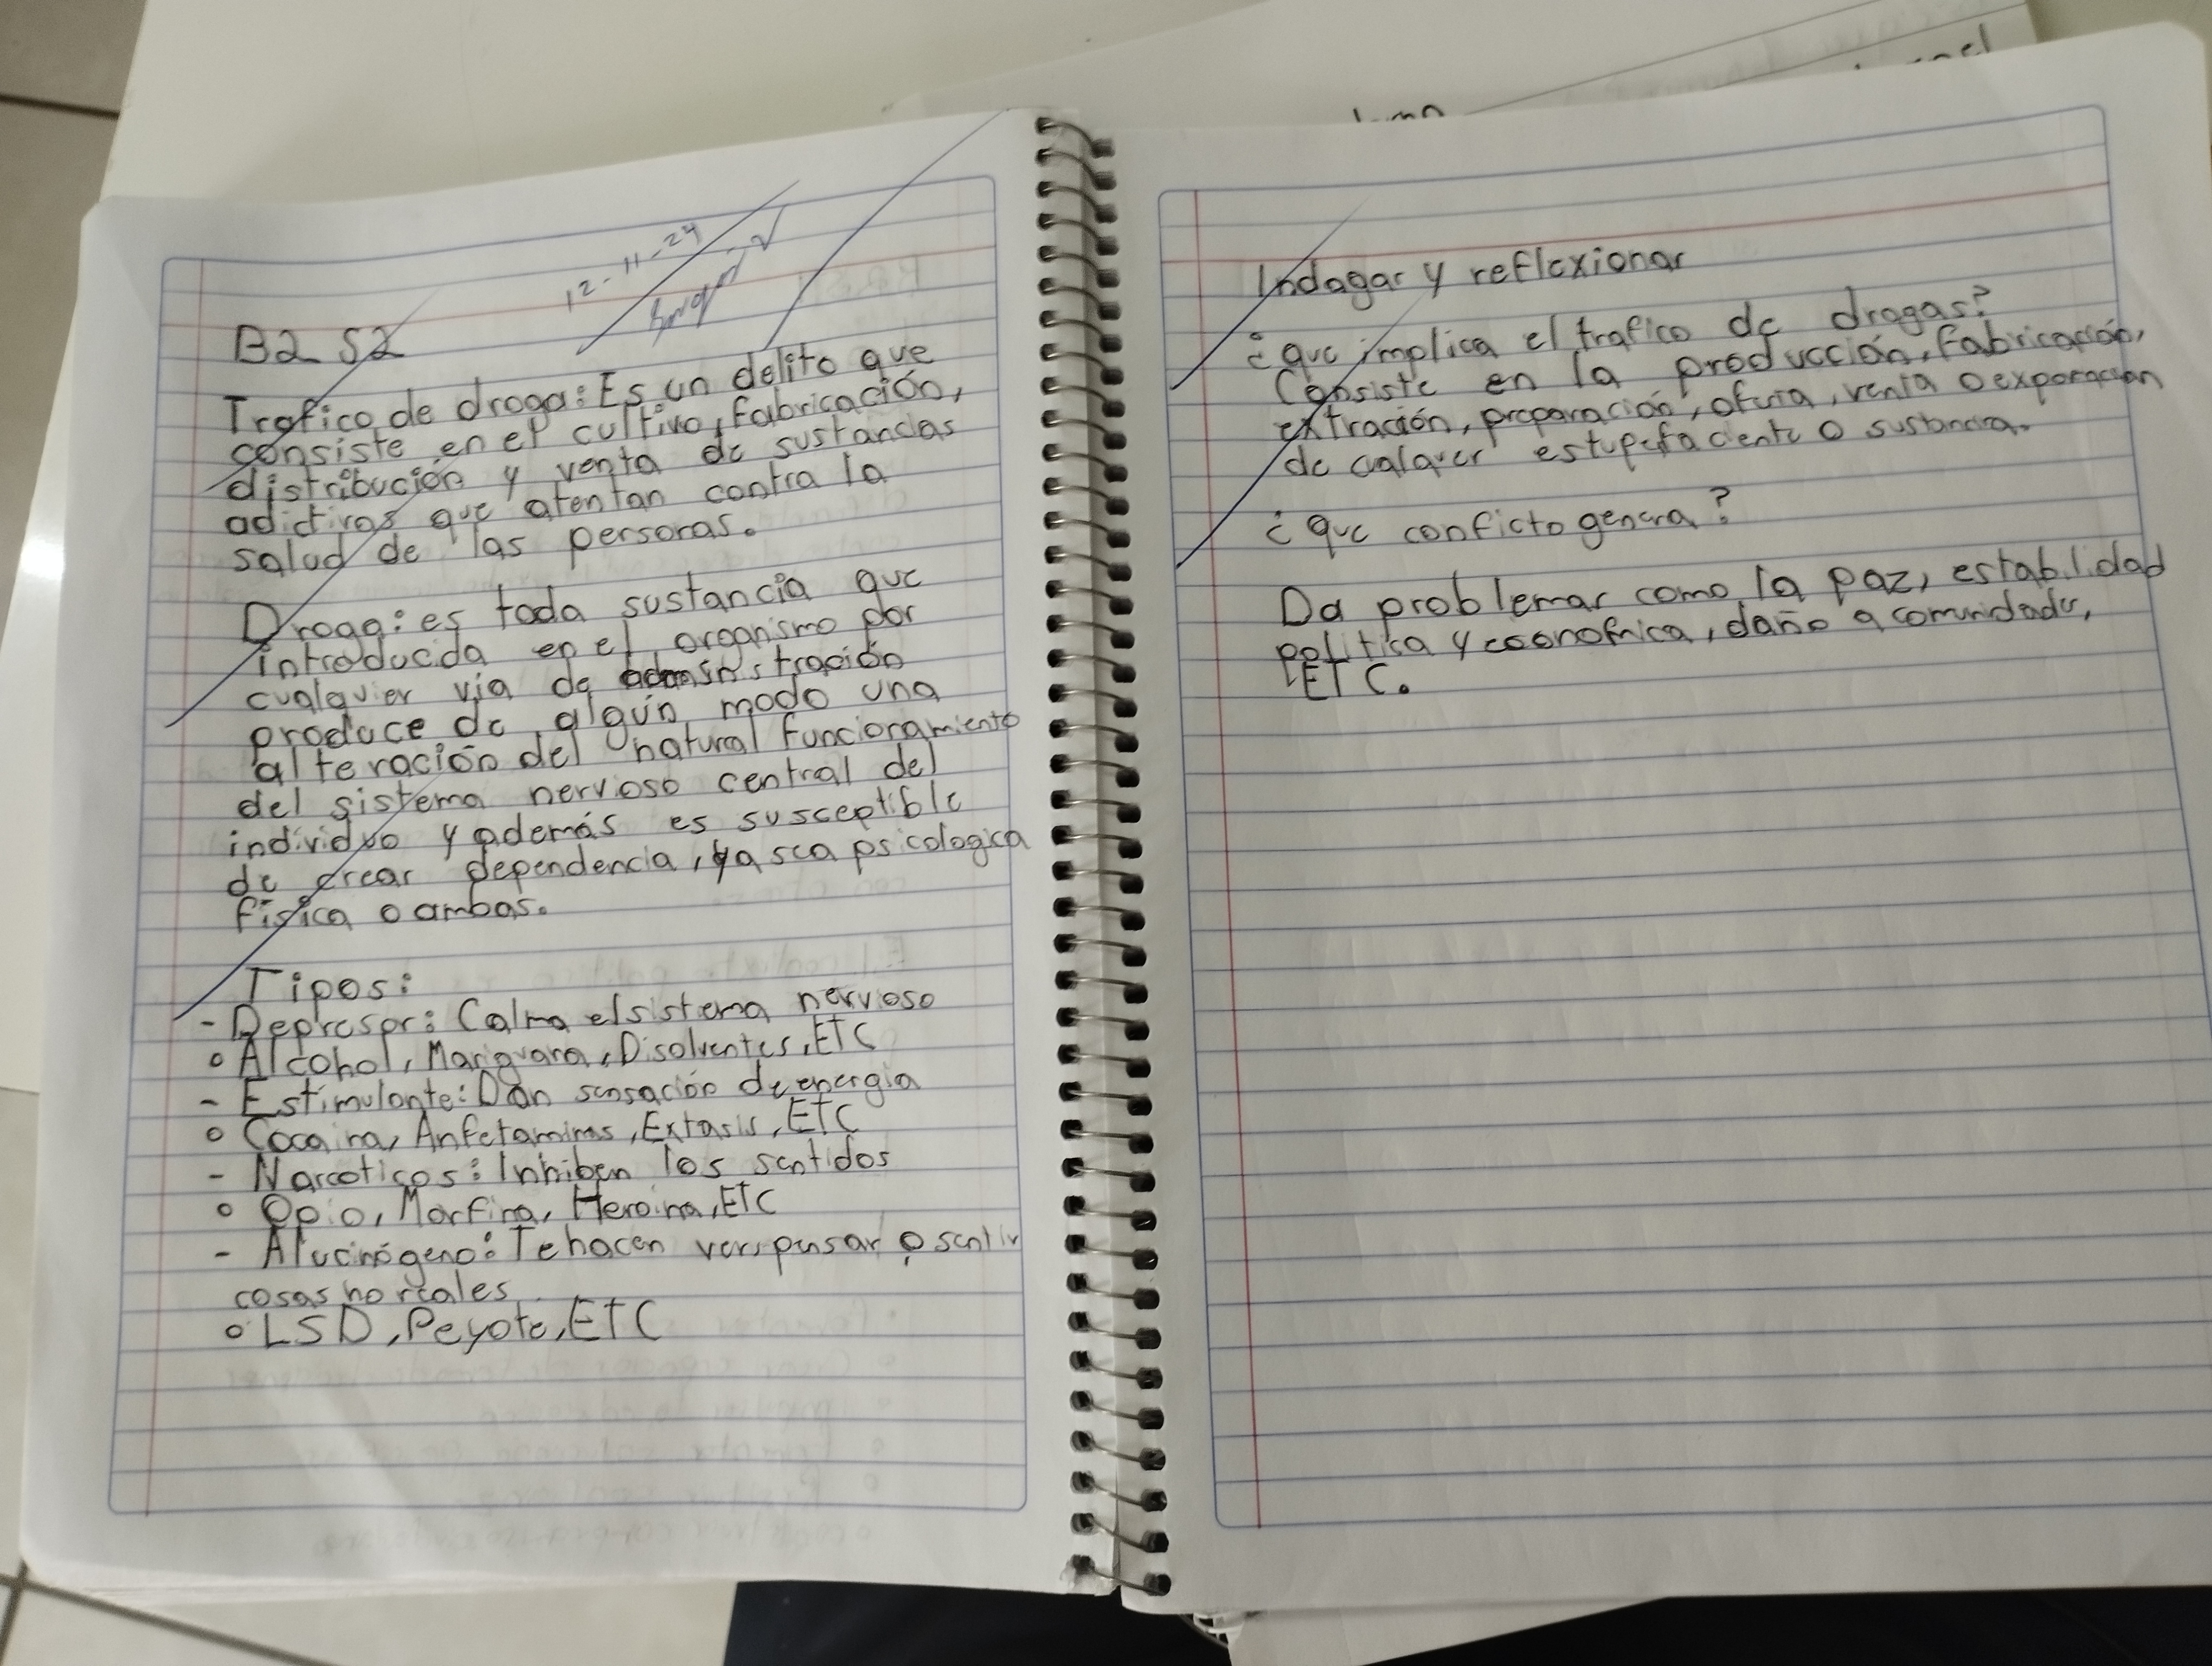 12-11-24
B2 S2
Trafico de droga: Es un delito que
consiste en el cultivo, fabricación,
distribución y venta de sustancias
adictivas que atentan contra la
salud de las personas.
Droga: es toda sustancia que
introducida en el organismo por
cualquier vía de administración
produce de algún modo una
alteración del natural funcionamiento
del sistema nervioso central del
individuo y además es susceptible
de crear dependencia, ya sea psicologica
física o ambas.
Tipos:
- Depresor: Calma el sistema nervioso
° Alcohol, Mariguana, Disolventes, ETC
- Estimulante: Dan sensación de energia
° Cocaina, Anfetaminas, Extasis, ETC
- Narcoticos: Inhiben los sentidos
° Opio, Morfina, Heroina, ETC
- Alucinógeno: Te hacen ver, pensar o sentir
cosas no reales
° LSD, Peyote, ETC
Indagar y reflexionar
¿que implica el trafico de drogas?
Consiste en la producción, fabricación,
extración, preparación, oferta, venta o
de cualquer estupefaciente o sustancia.
¿que conficto genera?
Da problemas como la paz, estabilidad
politica y economica, daño a comunidades,
ETC.